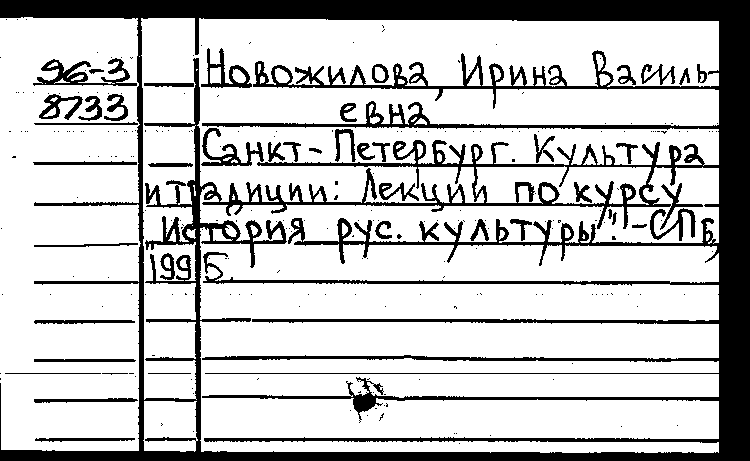 96-3 Новожилова, Ирина Василь-
8733 евна
Санкт-Петербург. Культура
и традиции: Лекции по курсу
"История рус. культуры". - СПб,
1995.